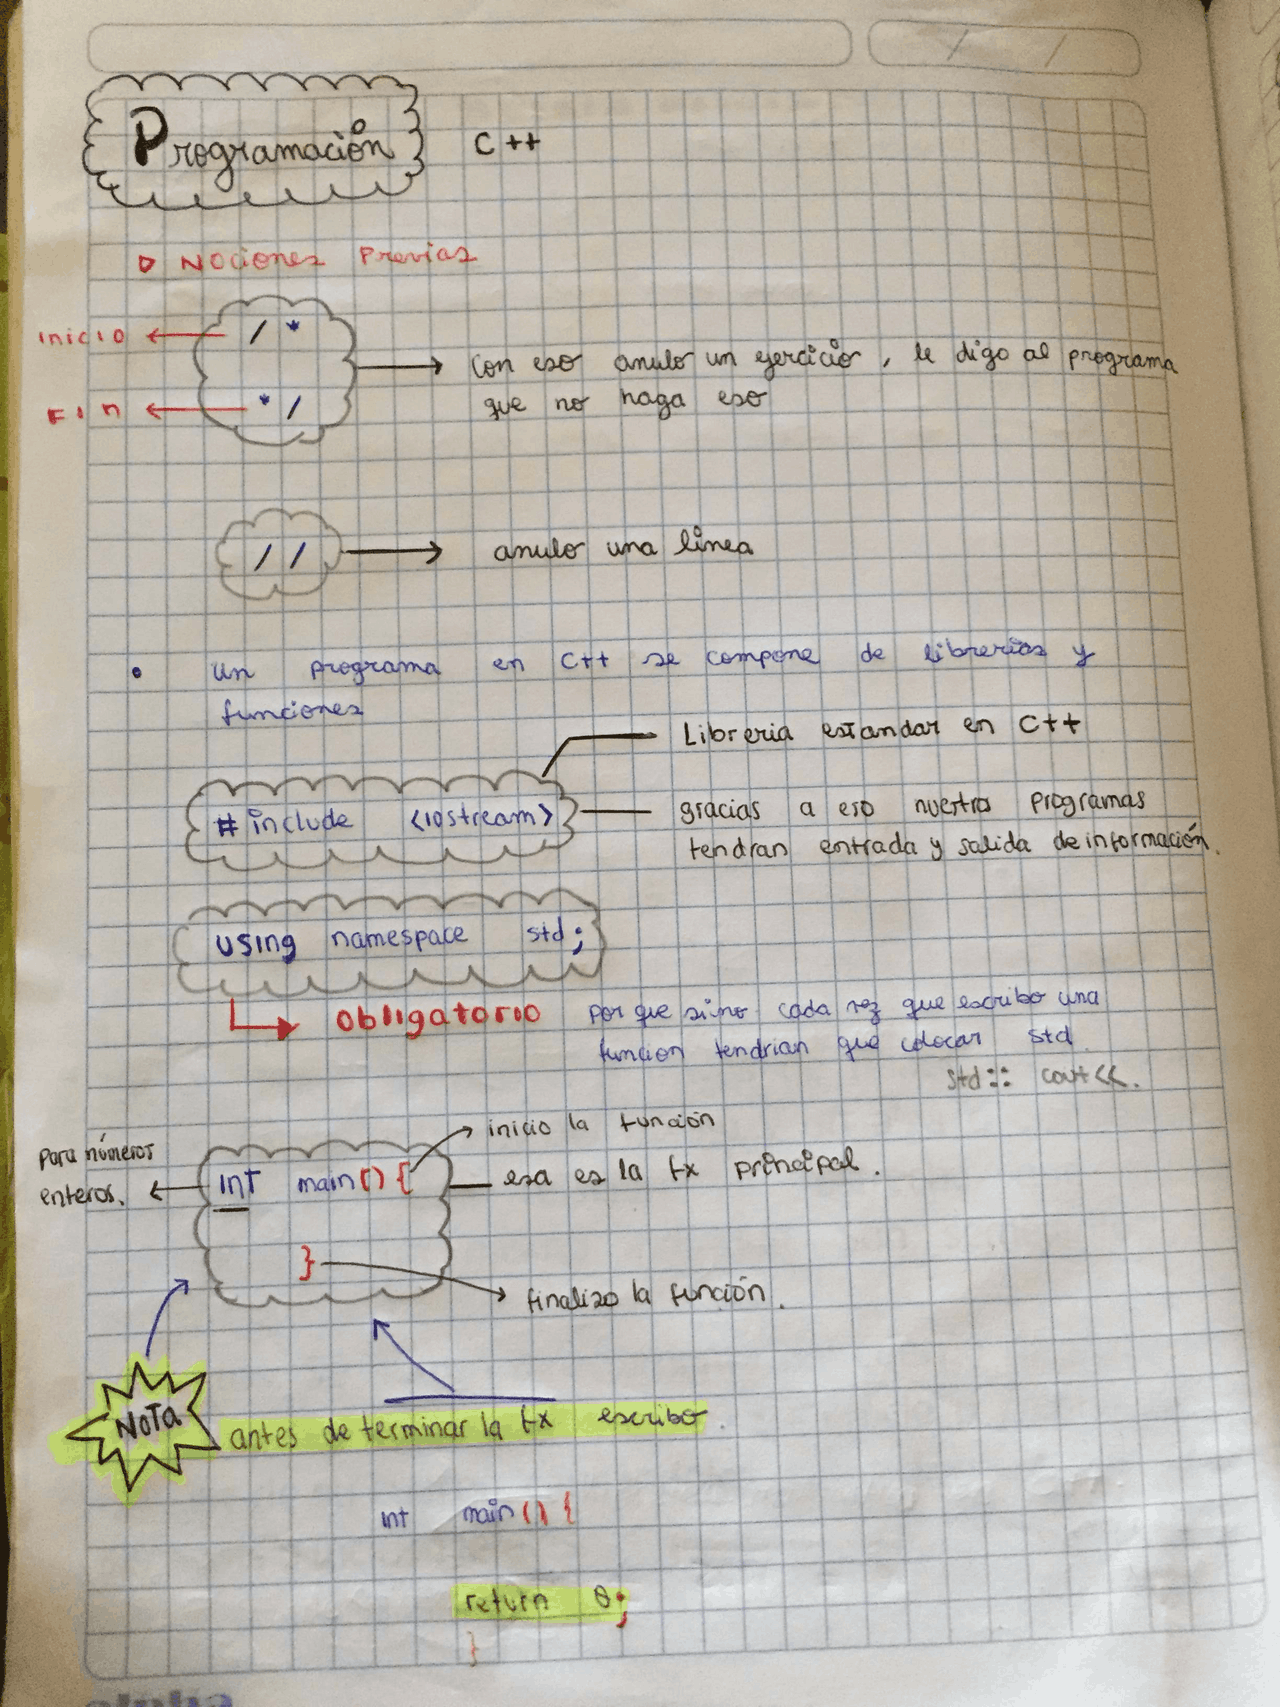 Programación C++
Nociones Previas
inicio ← / * → Con eso anulo un ejercicio, le digo al programa
Fin ← * / que no haga eso
/ / → anulo una línea
• un programa en C++ se compone de librerías y
funciones
Libreria estandar en C++
#include <iostream> gracias a eso nuestros programas
tendran entrada y salida de información.
using namespace std;
obligatorio por que si no cada vez que escribo una
funcion tendrian que colocar std
std:: cout<<.
inicio la función
para números
enteros. ← int main() { esa es la fx principal.
} → finalizo la función.
NOTA antes de terminar la fx escribo.
int main() {
return 0;
}